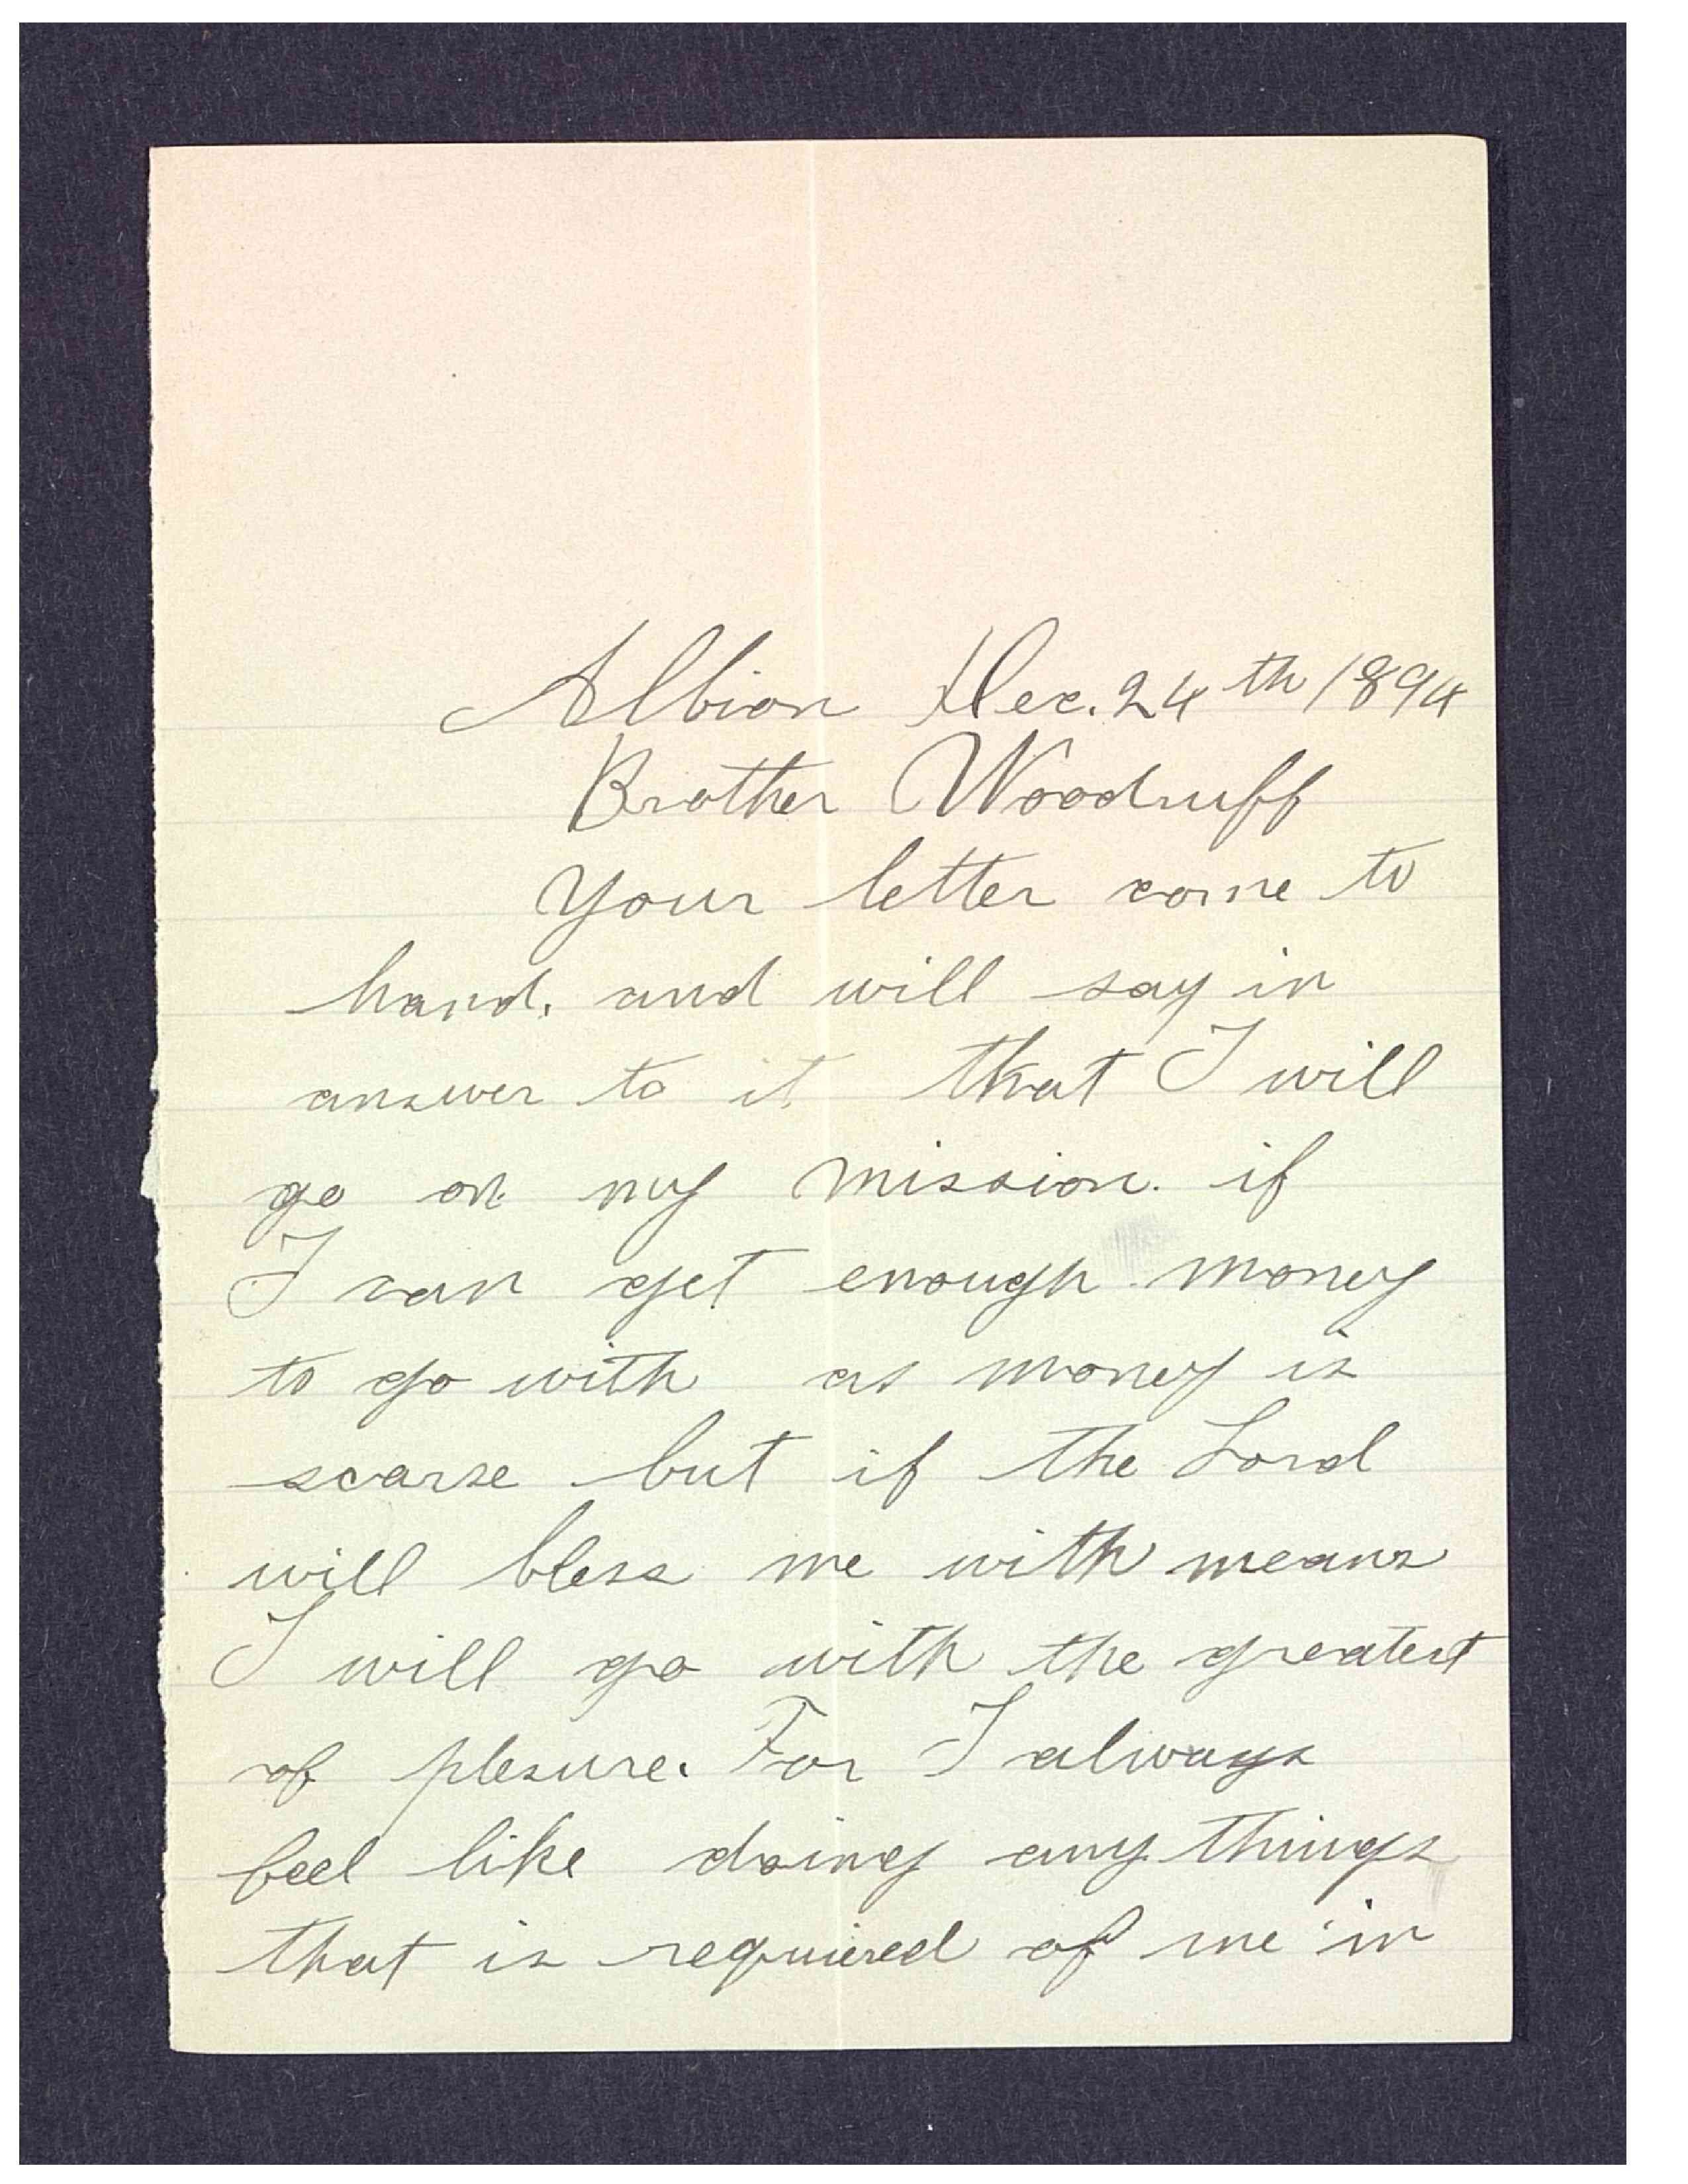 Albion Dec. 24th 1894
Brother Woodruff
Your letter come to
hand. and will say in
answer to it that I will
go on my mission. if
I can get enough money
to go with as money is
scarse but if the Lord
will bless me with means
I will go with the greatest
of plesure. For I always
feel like doing any things
that is requiered of me in